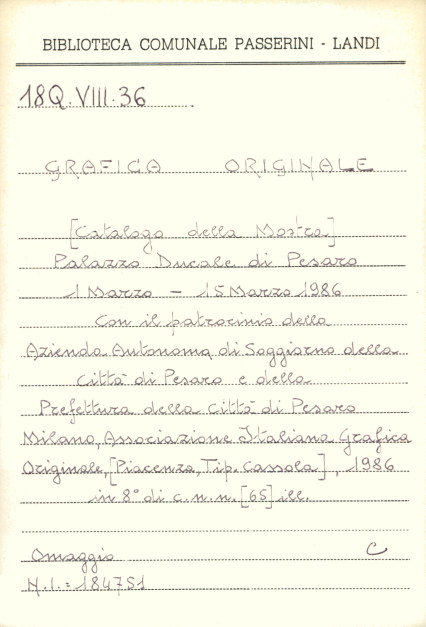 BIBLIOTECA COMUNALE PASSERINI - LANDI
18Q.VIII.36
GRAFICA ORIGINALE
[Catalogo della Mostra]
Palazzo Ducale di Pesaro
1 Marzo - 15 Marzo 1986
Con il patrocinio della
Azienda Autonoma di Soggiorno della
Città di Pesaro e della
Prefettura della Città di Pesaro
Milano, Associazione Italiana Grafica
Originale, [Piacenza, Tip. Cassola], 1986
in 8° di c.n.n. [65] ill.
Omaggio C
N.I.=184751